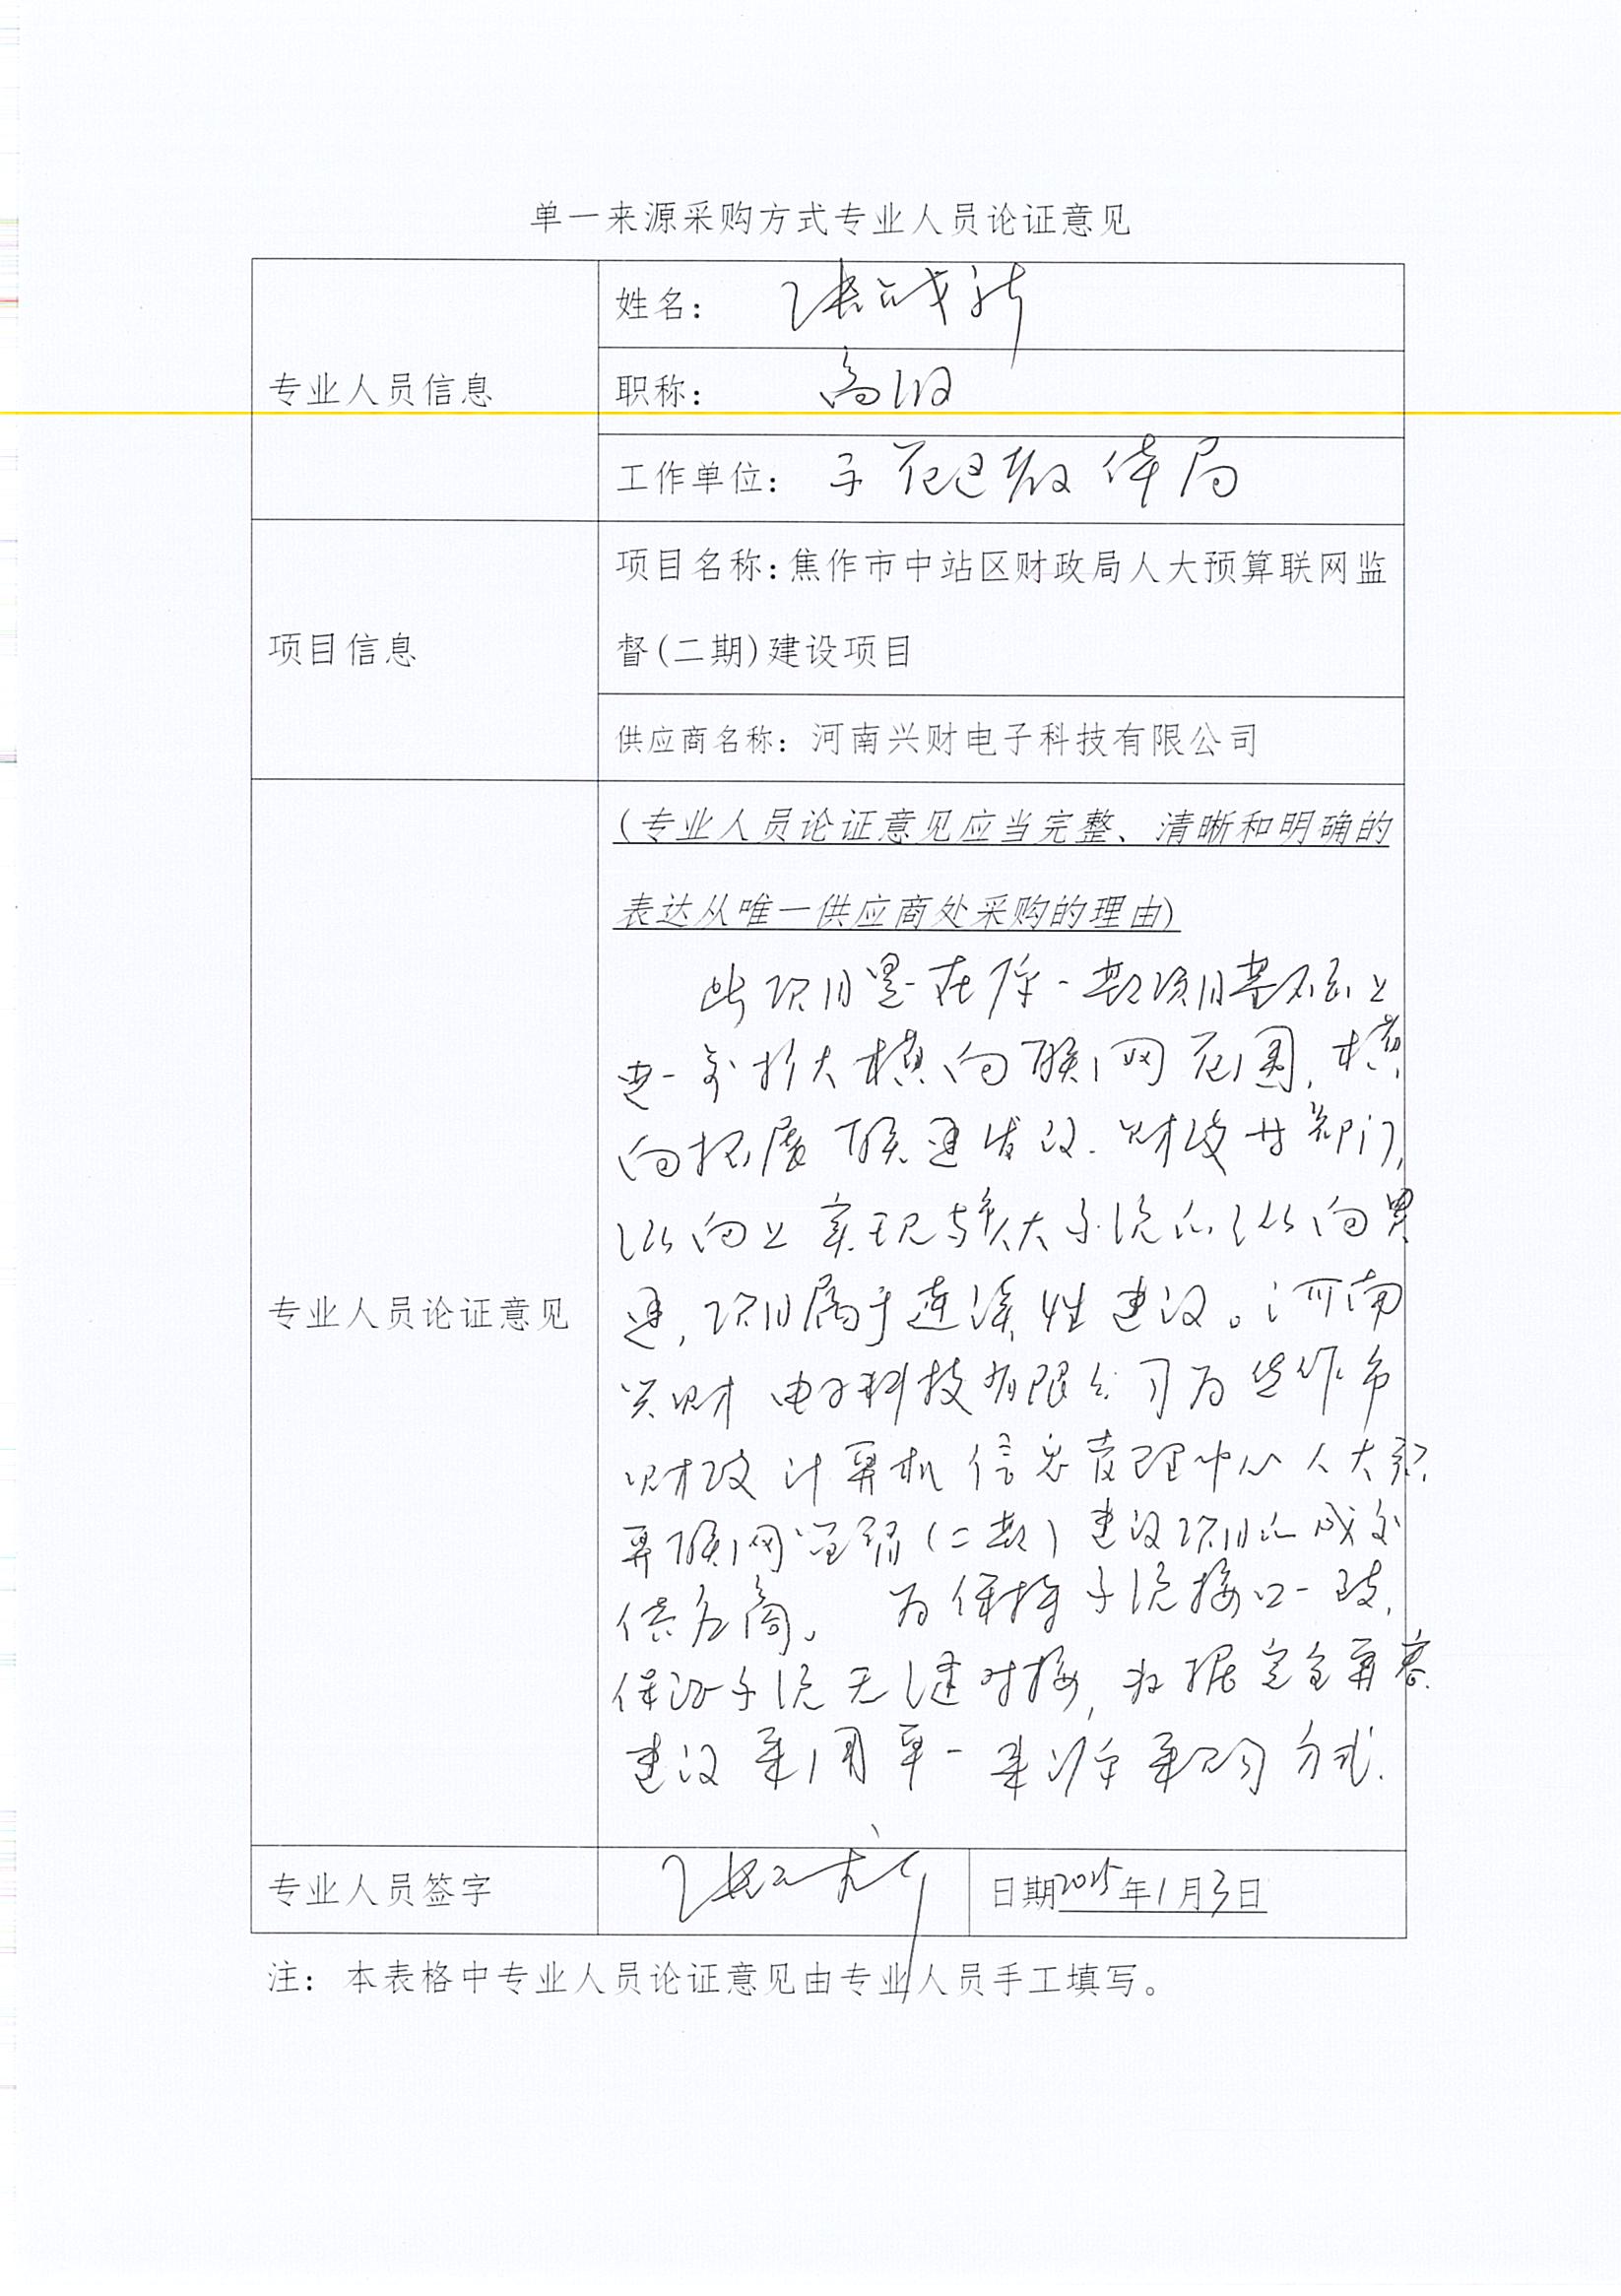 单一来源采购方式专业人员论证意见
专业人员信息
姓名: 张战新
职称: 高级
工作单位: 教体局
项目信息
项目名称:焦作市中站区财政局人大预算联网监
督(二期)建设项目
供应商名称: 河南兴财电子科技有限公司
专业人员论证意见
(专业人员论证意见应当完整、清晰和明确的
表达从唯一供应商处采购的理由)
此项目是在原一期项目基础上
进一步扩大横向联网范围,横
向拓展联通发改、财政等部门,
纵向上实现与人大系统的纵向贯
通,项目属于连续性建设。河南
兴财电子科技有限公司为焦作市
财政计算机信息管理中心人大预
算联网监督(二期)建设项目的成交
供应商。为保持系统接口一致,
保证系统无缝对接,数据完全兼容
建议采用单一来源采购方式.
专业人员签字
日期2025年1月3日
注: 本表格中专业人员论证意见由专业人员手工填写。